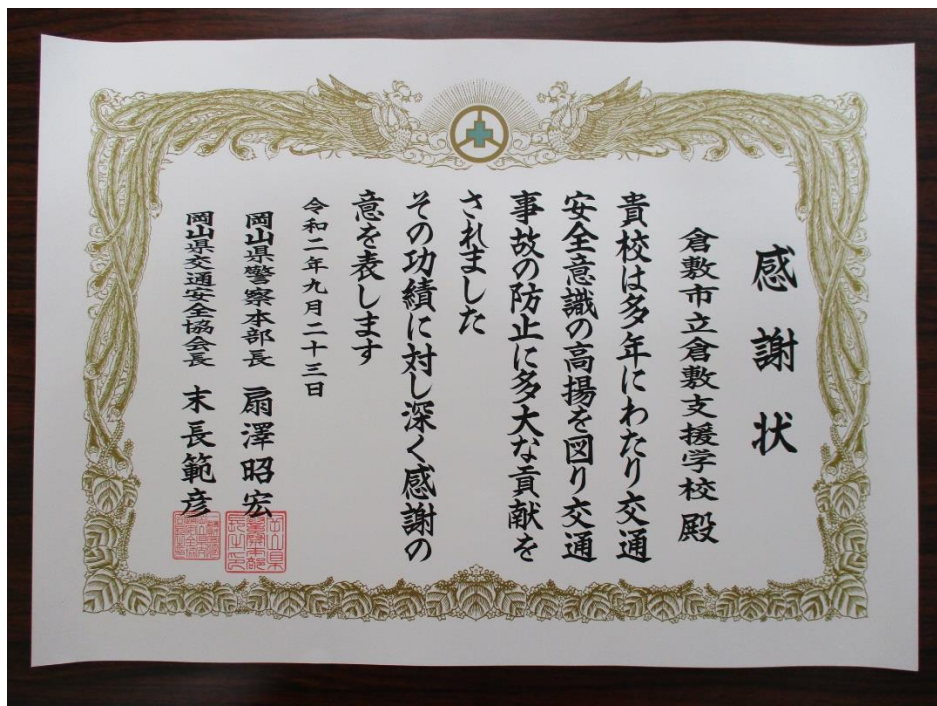 感謝状
倉敷市立倉敷支援学校殿
貴校は多年にわたり交通
安全意識の高揚を図り交通
事故の防止に多大な貢献を
されました
その功績に対し深く感謝の
意を表します
令和二年九月二十三日
岡山県警察本部長 扇澤昭宏
岡山県交通安全協会長 末長範彦